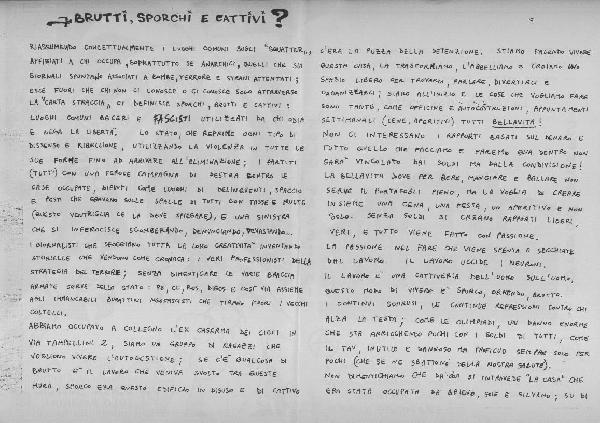 → BRUTTI, SPORCHI E CATTIVI?
RIASSUMENDO CONCETTUALMENTE I LUOGHI COMUNI SUGLI "SQUATTER",
AFFIBIATI A CHI OCCUPA, SOPRATTUTTO SE ANARCHICI, QUELLI CHE SUI
GIORNALI SPUNTANO ASSOCIATI A BOMBE, TERRORE E STRANI ATTENTATI;
ESCE FUORI CHE CHI NON CI CONOSCE O CI CONOSCE SOLO ATTRAVERSO
LA "CARTA STRACCIA", CI DEFINISCE SPORCHI, BRUTTI E CATTIVI!
LUOGHI COMUNI BACERI E FASCISTI UTILIZZATI DA CHI ODIA
E NEGA LA LIBERTA'. LO STATO, CHE REPRIME OGNI TIPO DI
DISSENSO E RIBELLIONE, UTILIZZANDO LA VIOLENZA IN TUTTE LE
SUE FORME FINO AD ARRIVARE ALL'ELIMINAZIONE; I PARTITI
(TUTTI) CON UNA FEROCE CAMPAGNA DI DESTRA CONTRO LE
CASE OCCUPATE, DIPINTI COME LUOGHI DI DELINQUENTI, SPACCIO
E POSTI CHE GRAVANO SULLE SPALLE DI TUTTI CON TASSE E MULTE
(QUESTO VENTRIGLIA CE LA DEVE SPIEGARE), E UNA SINISTRA
CHE SI INFEROCISCE SGOMBERANDO, DENUNCIANDO, DEVASTANDO...
I GIORNALISTI CHE SFOGGIANO TUTTA LA LORO CREATIVITA' INVENTANDO
STORIELLE CHE VENDONO COME CRONACA: I VERI PROFESSIONISTI DELLA
STRATEGIA DEL TERRORE; SENZA DIMENTICARE LE VARIE BRACCIA
ARMATE SERVE DELLO STATO: PS, CC, ROS, DIGOS E COSI' VIA ASSIEME
AGLI IMMANCABILI BURATTINI NEOFASCISTI CHE TIRANO FUORI I VECCHI
COLTELLI.
ABBIAMO OCCUPATO A COLLEGNO L'EX CASERMA DEI CIVICH IN
VIA TAMPELLINI 2, SIAMO UN GRUPPO DI RAGAZZI CHE
VOGLIONO VIVERE L'AUTOGESTIONE; SE C'E' QUALCOSA DI
BRUTTO E' IL LAVORO CHE VENIVA SVOLTO TRA QUESTE
MURA, SPORCO ERA QUESTO EDIFICIO IN DISUSO E DI CATTIVO
C'ERA LA PUZZA DELLA DETENZIONE. STIAMO FACENDO VIVERE
QUESTA CASA, LA TRASFORMIAMO, L'ABBELLIAMO E CREIAMO UNO
SPAZIO LIBERO PER TROVARCI, PARLARE, DIVERTIRCI E
ORGANIZZARCI; SIAMO ALL'INIZIO E LE COSE CHE VOGLIAMO FARE
SONO TANTE, COME OFFICINE E AUTOCOSTRUZIONI, APPUNTAMENTI
SETTIMANALI (CENE, APERITIVI) TUTTI BELLAVITA!
NON CI INTERESSANO I RAPPORTI BASATI SUL DENARO E
TUTTO QUELLO CHE FACCIAMO E FAREMO QUA DENTRO NON
SARA' VINCOLATO DAI SOLDI MA DALLA CONDIVISIONE!
LA BELLAVITA DOVE PER BERE, MANGIARE E BALLARE NON
SERVE IL PORTAFOGLI PIENO, MA LA VOGLIA DI CREARE
INSIEME UNA CENA, UNA FESTA, UN APERITIVO E NON
SOLO. SENZA SOLDI SI CREANO RAPPORTI LIBERI,
VERI, E TUTTO VIENE FATTO CON PASSIONE.
LA PASSIONE NEL FARE CHE VIENE SPENTA A SECCHIATE
DAL LAVORO. IL LAVORO UCCIDE I NEURONI.
IL LAVORO E' UNA CATTIVERIA DELL'UOMO SULL'UOMO,
QUESTO MODO DI VIVERE E' SPORCO, ORRENDO, BRUTTO.
I CONTINUI SOPRUSI, LE CONTINUE REPRESSIONI CONTRO CHI
ALZA LA TESTA; COME LE OLIMPIADI, UN DANNO ENORME
CHE STA ARRICCHENDO POCHI CON I SOLDI DI TUTTI, COME
IL TAV, INUTILE E DANNOSO MA PROFICUO SEMPRE SOLO PER
POCHI (CHE SE NE SBATTONO DELLA NOSTRA SALUTE).
NON DIMENTICHIAMO CHE DA QUA SI INTRAVEDE "LA CASA" CHE
ERA STATA OCCUPATA DA BALENO, SOLE E SILVANO; SU DI